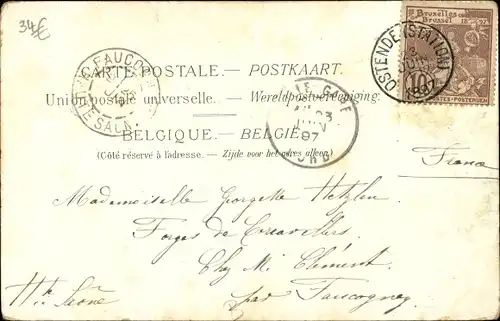 34€
Bruxelles 1897
Brussel
10
POSTES-POSTERIJEN
OSTENDE (STATION)
1897
FAUCOG
CARTE POSTALE. — POSTKAART.
Union postale universelle. — Wereldpostvereeniging.
BELGIQUE. — BELGIË
(Côté réservé à l'adresse. — Zijde voor het adres alleen.)
GARE
23
97
France
Mademoiselle Georgette
Forges de
Chez Mr Clément
Hte Saône
par Faucogney